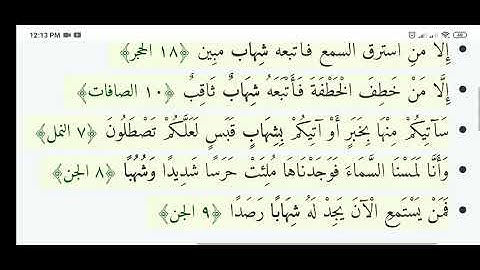 12:13 PM
إِلَّا مَنِ اسْتَرَقَ السَّمْعَ فَأَتْبَعَهُ شِهَابٌ مُبِينٌ ﴿١٨ الحجر﴾
إِلَّا مَنْ خَطِفَ الْخَطْفَةَ فَأَتْبَعَهُ شِهَابٌ ثَاقِبٌ ﴿١٠ الصافات﴾
سَآتِيكُمْ مِنْهَا بِخَبَرٍ أَوْ آتِيكُمْ بِشِهَابٍ قَبَسٍ لَعَلَّكُمْ تَصْطَلُونَ ﴿٧ النمل﴾
وَأَنَّا لَمَسْنَا السَّمَاءَ فَوَجَدْنَاهَا مُلِئَتْ حَرَسًا شَدِيدًا وَشُهُبًا ﴿٨ الجن﴾
فَمَنْ يَسْتَمِعِ الْآنَ يَجِدْ لَهُ شِهَابًا رَصَدًا ﴿٩ الجن﴾